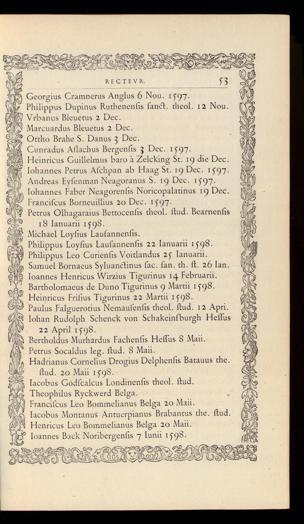 RECTEVR. 53
Georgius Cramnerus Anglus 6 Nou. 1597.
Philippus Dupinus Ruthenensis sanct. theol. 12 Nou.
Vrbanus Bleuetus 2 Dec.
Marcuardus Bleuetus 2 Dec.
Ottho Brahe S. Danus 3 Dec.
Cunradus Aslachus Bergensis 3 Dec. 1597.
Heinricus Guillelmus baro à Zelcking St. 19 die Dec.
Iohannes Petrus Aschpan ab Haag St. 19 Dec. 1597.
Andreas Eysenman Neagoranus S. 19 Dec. 1597.
Iohannes Faber Neagorensis Noricopalatinus 19 Dec.
Franciscus Borneuillius 20 Dec. 1597.
Petrus Olhagaraius Bettocensis theol. stud. Bearnensis
18 Ianuarii 1598.
Michael Loysius Lausannensis.
Philippus Loysius Lausannensis 22 Ianuarii 1598.
Philippus Leo Curiensis Voitlandus 25 Ianuarii.
Samuel Bornaeus Syluanctinus sac. san. th. st. 26 Ian.
Ioannes Henricus Wirzius Tigurinus 14 Februarii.
Bartholomaeus de Duno Tigurinus 9 Martii 1598.
Heinricus Frisius Tigurinus 22 Martii 1598.
Paulus Falguerotius Nemausensis theol. stud. 12 Apri.
Iohan Rudolph Schenck von Schakeinsburgh Hessus
22 April 1598.
Bertholdus Murhardus Fachensis Hessus 8 Maii.
Petrus Socaldus leg. stud. 8 Maii.
Hadrianus Cornelius Drogius Delphensis Batauus the.
stud. 20 Maii 1598.
Iacobus Godscalcus Londinensis theol. stud.
Theophilus Ryckwerd Belga.
Franciscus Leo Bommelianus Belga 20 Maii.
Iacobus Montanus Antuerpianus Brabantus the. stud.
Henricus Leo Bommelianus Belga 20 Maii.
Ioannes Back Noribergensis 7 Iunii 1598.